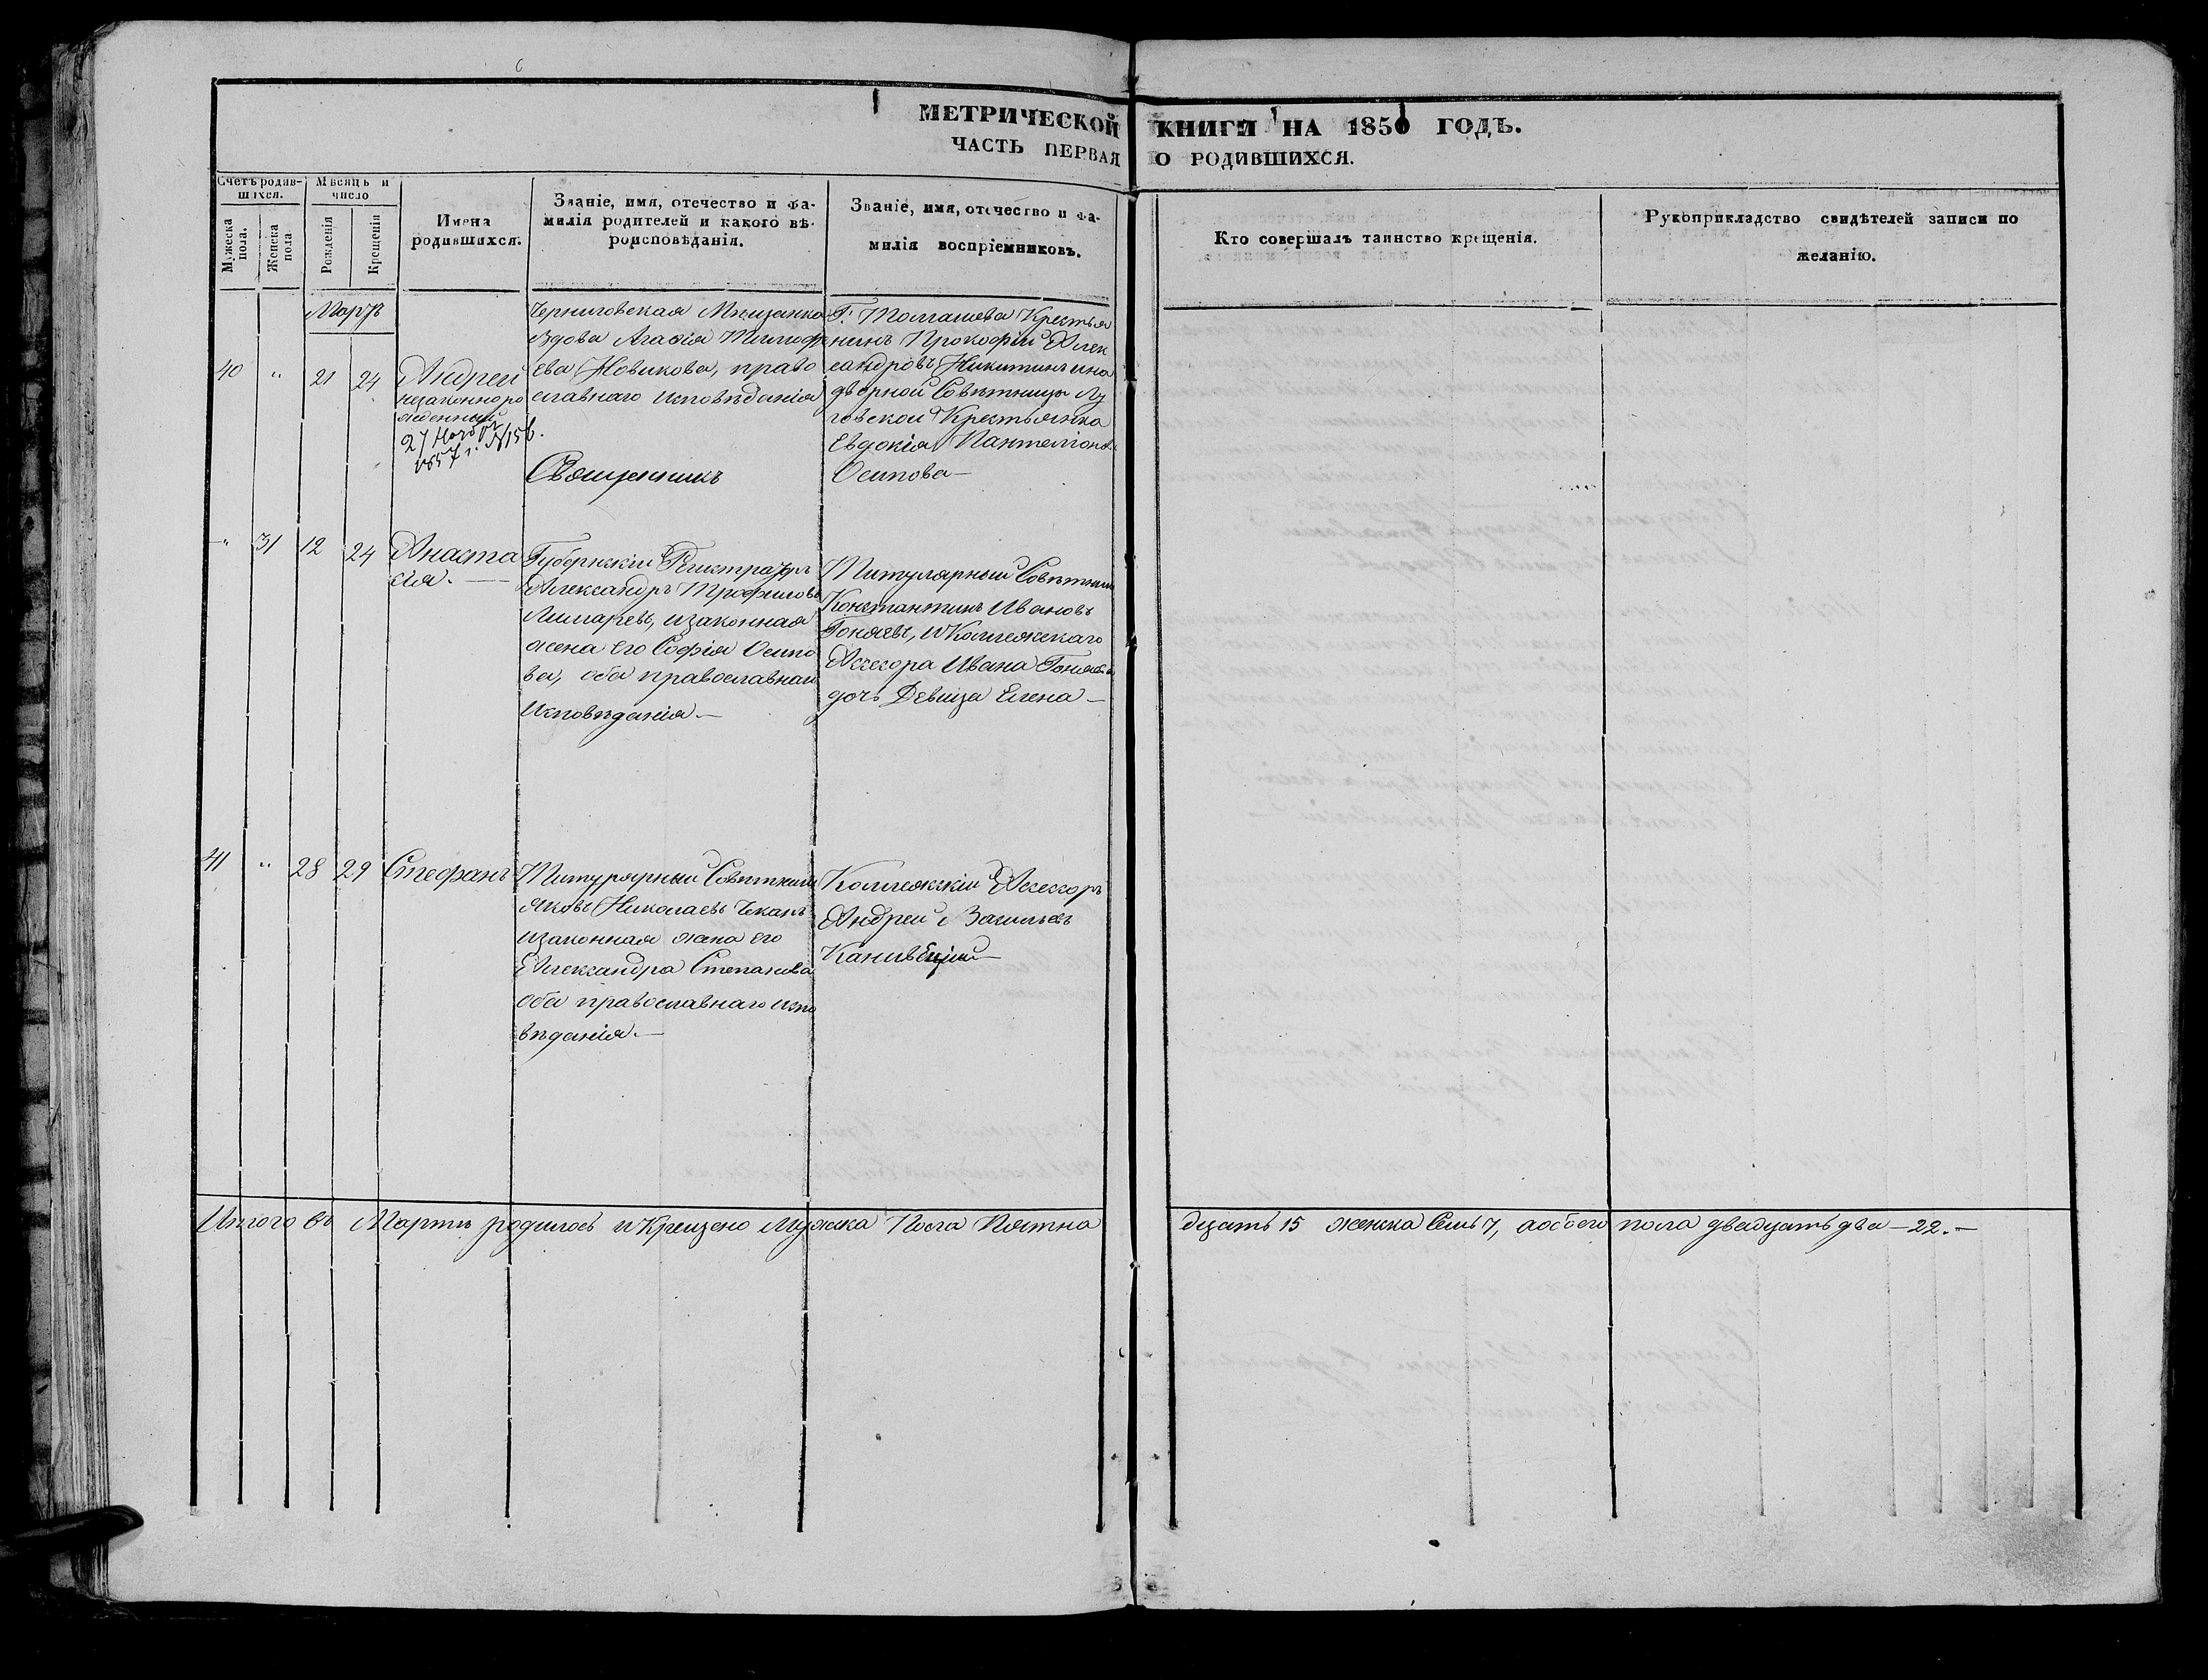 МЕТРИЧЕСКОЙ КНИГИ НА 1850 ГОДЪ.
ЧАСТЬ ПЕРВАЯ О РОДИВШИХСЯ.
Счетъ родив-
шихся.
Мужеска
пола.
Женска
пола
Мѣсяцъ и
число
Рожденія
Крещенія
Имена
родившихся.
Званіе, имя, отечество и фа-
милія родителей и какого вѣ-
роисповѣданія.
Званіе, имя, отечество и фа-
милія воспріемниковъ.
Кто совершалъ таинство крещенія.
Рукоприкладство свидѣтелей записи по
желанію.
Мартъ
40 " 21 24
Андрей
незаконноро
жденный
27 Нояб
1857 г. №
Черниговская Мѣщанка
Вдова Агафія Тимофе
ева Новикова, право
славнаго исповѣданія
Священникъ
Г. Крестья
нинъ Прокофій Алек
сандровъ Никитинъ и на
дворной Совѣтницы Лу
говской Крестьянка
Евдокія Пантелеіонов.
Осипова—
" 31 12 24
Анаста
сія. —
Губернскій Регистраторъ
Александръ Трофимовъ
Лимаревъ, изаконная
жена его Софія Осипо
ва, оба православнаго
Исповѣданія.—
Титулярный Совѣтникъ
Константинъ Ивановъ
Гоняевъ, и Коллежскаго
Ассесора Ивана Гоняева
дочь Девица Елена —
41 " 28 29
Стефанъ
Титулярный Совѣтникъ
Яковъ Николаевъ Чеканъ
изаконная жена его
Александра Степанова
оба православнаго испо
вѣданія.—
Коллежскій Ассесоръ
Андрей Васильевъ
Итого въ Мартѣ родилось и Крещено Мужска Пола Пятна
дцать 15 женска Семь 7, аобоего пола двадцать два — 22.—